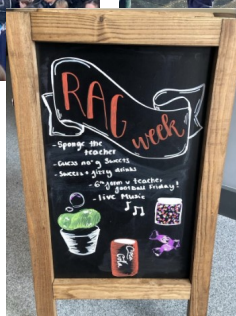 RAG
week
- Sponge the
teacher
- Guess no. of Sweets
- Sweets + fizzy drinks
- 6th form v teacher
football Friday!
- live Music
Coca Cola